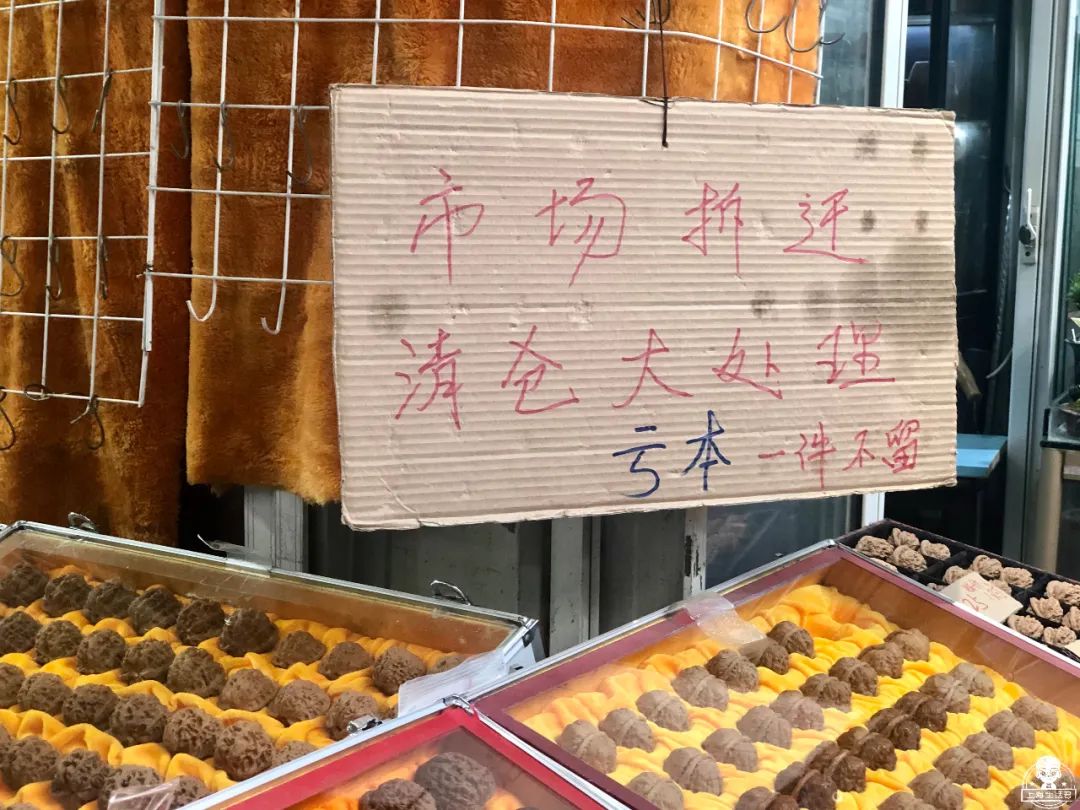 市场拆迁
清仓大处理
亏本 一件不留